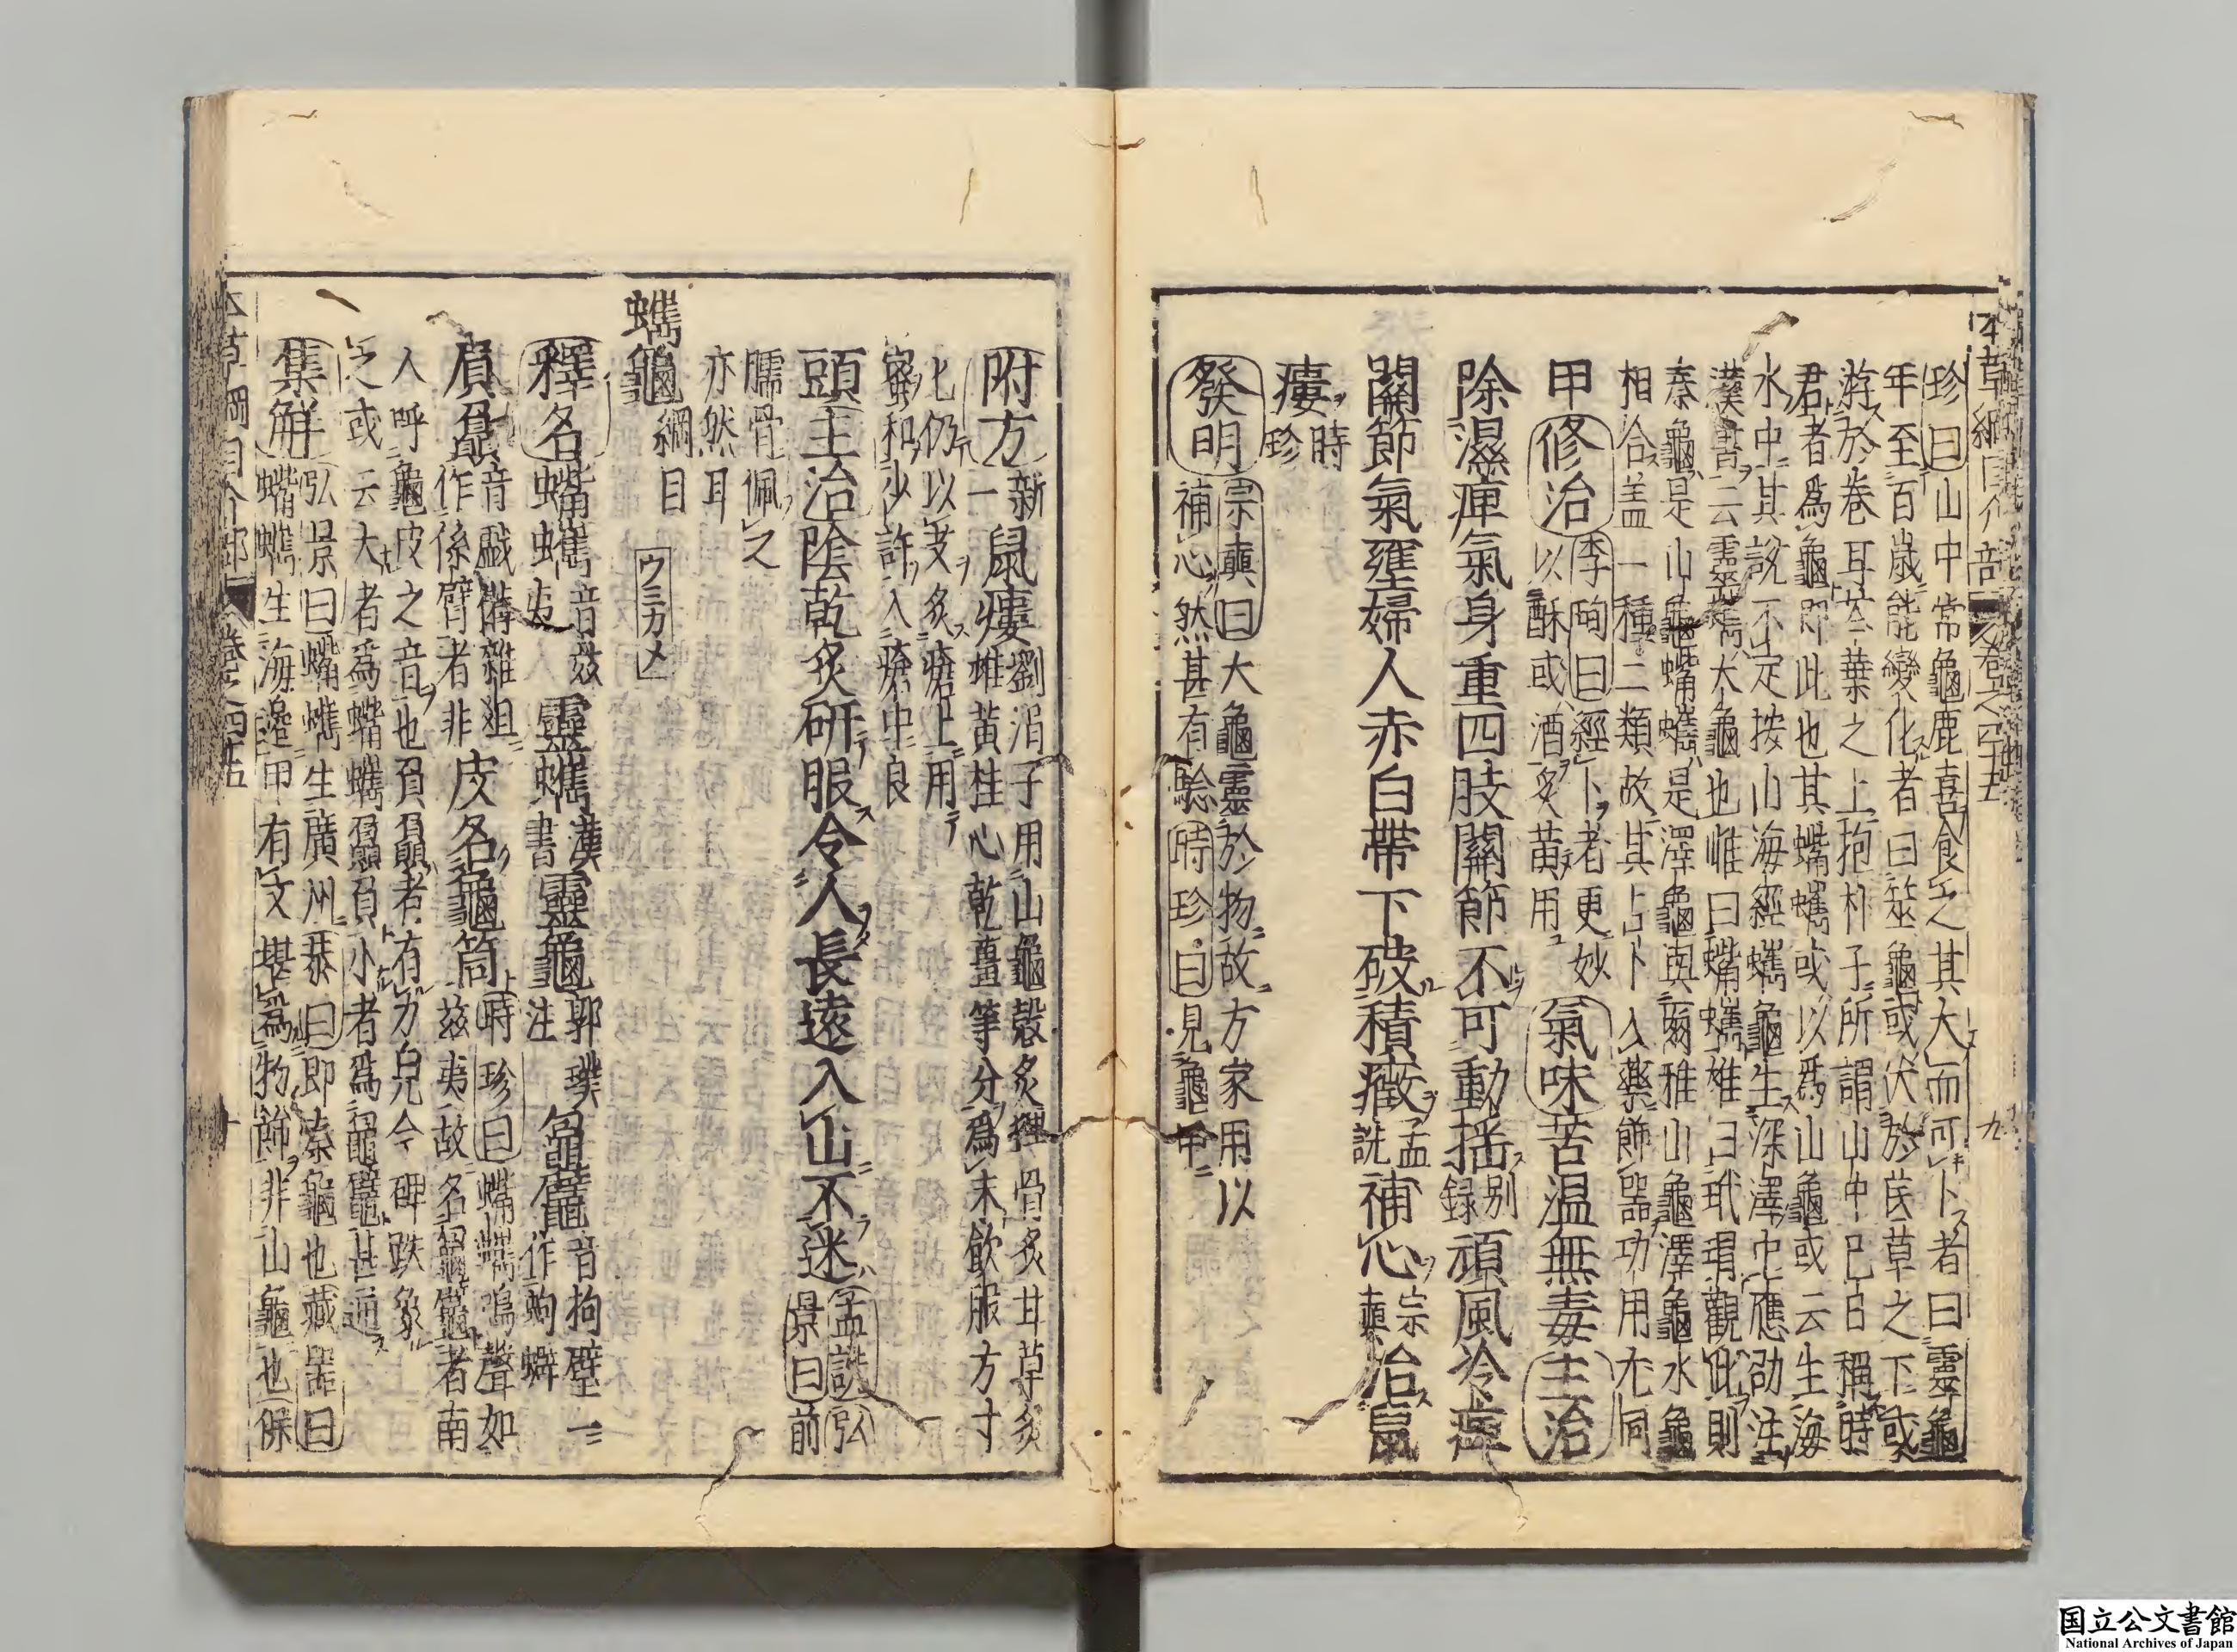 本草綱目介部 之卷之四十五 九
珍曰山中常龜鹿喜食之其大而可卜者曰靈龜
年至百歲能變化者曰筮龜或伏於蓍草之下或
游於卷耳芩葉之上抱朴子所謂山中巳日稱時
君者爲龜即此也其蠵蠵或以爲山龜或云生海
水中其說不定按山海經蠵龜生深澤中應劭注
漢書云靈蠵大龜也雄曰蠵蠵雌曰玳瑁觀此則
秦龜是山龜蠵蠵是澤龜與爾雅山龜澤龜水龜
相合盖一種二類故其占卜入藥飾器功用尤同
甲修治李珣曰經卜者更妙
以酥或酒炙黃用氣味苦温無毒主治
除濕痺氣身重四肢關節不可動揺别録頑風冷痺
關節氣壅婦人赤白帶下破積癥孟詵補心宗奭治鼠
瘻時珍
發明宗奭曰大龜靈於物故方家用以
補心然甚有驗時珍曰見龜甲
附方新一鼠瘻劉涓子用山龜殼炙狸骨炙甘草炙
雄黃桂心乾薑等分爲末飲服方寸
匕仍以艾灸瘡上用
蜜和少許入瘡中良
頭主治陰乾炙研服令人長遠入山不迷孟詵弘景曰前
臑骨佩之
亦然耳
蠵龜綱目 ウミカメ
釋名蠵蠵音玆夷靈蠵漢書靈龜郭璞注𪓛鼊音拘壁一作蚼蠏
贔屭音戲備雜俎作係臂者非皮名龜筒時珍曰蠵蠵鳴聲如
玆夷故名𪓛鼊者南
人呼龜皮之音也贔屭者有力皃今碑趺象
之或云大者爲蠵蠵贔屭小者爲𪓛鼊甚通
集解弘景曰蠵蠵生廣州恭曰即秦龜也藏器曰
蠵蠵生海邊甲有文堪爲物飾非山龜也保
本草綱目介部 卷之四十五 十
国立公文書館
National Archives of Japan